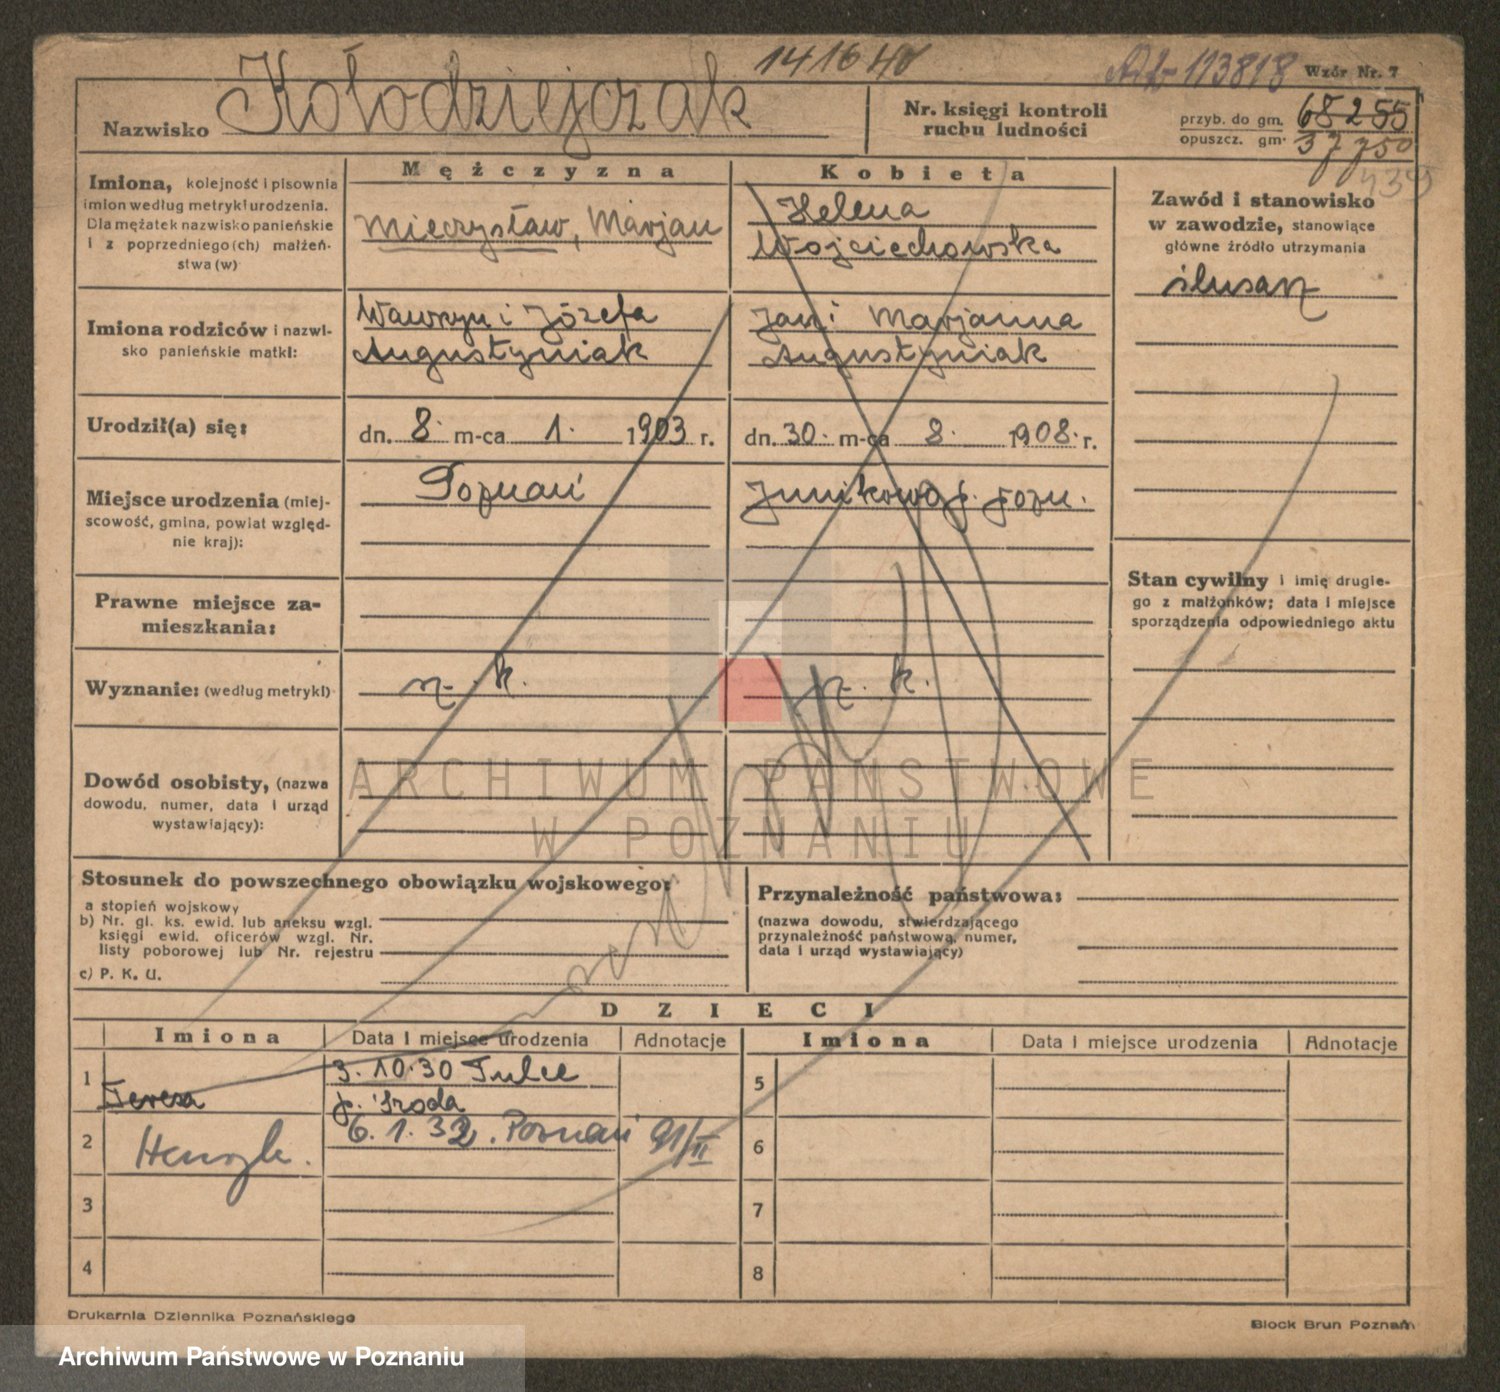 141640
113818 Wzór Nr. 7
Nazwisko Kołodziejczak
Nr. księgi kontroli
ruchu ludności
przyb. do gm. 68255
opuszcz. gm. 37750
Mężczyzna
Kobieta
Imiona, kolejność i pisownia
imion według metryki urodzenia.
Dla mężatek nazwisko panieńskie
i z poprzedniego(ch) małżeń-
stwa (w)
Mieczysław, Marjan
Helena
Wojciechowska
Zawód i stanowisko
w zawodzie, stanowiące
główne źródło utrzymania
ślusarz
Imiona rodziców i nazwi-
sko panieńskie matki:
Wawrzyn i Józefa
Augustyniak
Jan i Marjanna
Augustyniak
Urodził(a) się:
dn. 8. m-ca 1. 1903 r.
dn. 30. m-ca 8. 1908. r.
Miejsce urodzenia (miej-
scowość, gmina, powiat wzgląd-
nie kraj):
Poznań
Junikowo p. pozn.
Prawne miejsce za-
mieszkania:
Stan cywilny i imię drugie-
go z małżonków; data i miejsce
sporządzenia odpowiedniego aktu
Wyznanie: (według metryki)
rz. k.
rz. k.
Dowód osobisty, (nazwa
dowodu, numer, data i urząd
wystawiający):
ARCHIWUM PAŃSTWOWE
W POZNANIU
Stosunek do powszechnego obowiązku wojskowego:
a stopień wojskowy
b) Nr. gl. ks. ewid. lub aneksu wzgl.
księgi ewid. oficerów wzgl. Nr.
listy poborowej lub Nr. rejestru
c) P. K. U.
Przynależność państwowa:
(nazwa dowodu, stwierdzającego
przynależność państwową, numer,
data i urząd wystawiający)
DZIECI
Imiona Data i miejsce urodzenia Adnotacje Imiona Data i miejsce urodzenia Adnotacje
1 Teresa 3. 10. 30 Tulce
p. Środa
5
2 Henryk. 6. 1. 32. Poznań 91/II
6
3
7
4
8
Drukarnia Dziennika Poznańskiego
Block Brun Poznań
Archiwum Państwowe w Poznaniu